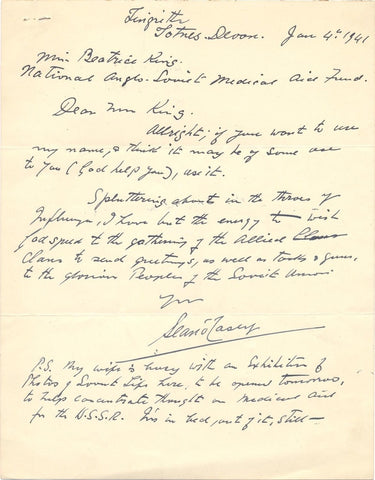 Tingrith
Totnes. Devon. Jan 4th 1941
Miss Beatrice King.
National Anglo-Soviet Medical Aid Fund.
Dear Miss King.
Allright; if you want to use
my name, & think it may be of some use
to you (God help you), use it.
Spluttering about in the throes of
Influenza, I have but the energy to wish
Godspeed to the gathering of the Allied Clans
Clans to send greetings, as well as tanks & guns,
to the glorious Peoples of the Soviet Union
Yrs
Sean O'Casey
P.S. My wife is busy with an Exhibition of
Photos of Soviet Life here, to be opened tomorrow,
to help concentrate thought on medical aid
for the U.S.S.R. I'm in bed, out of it, still—